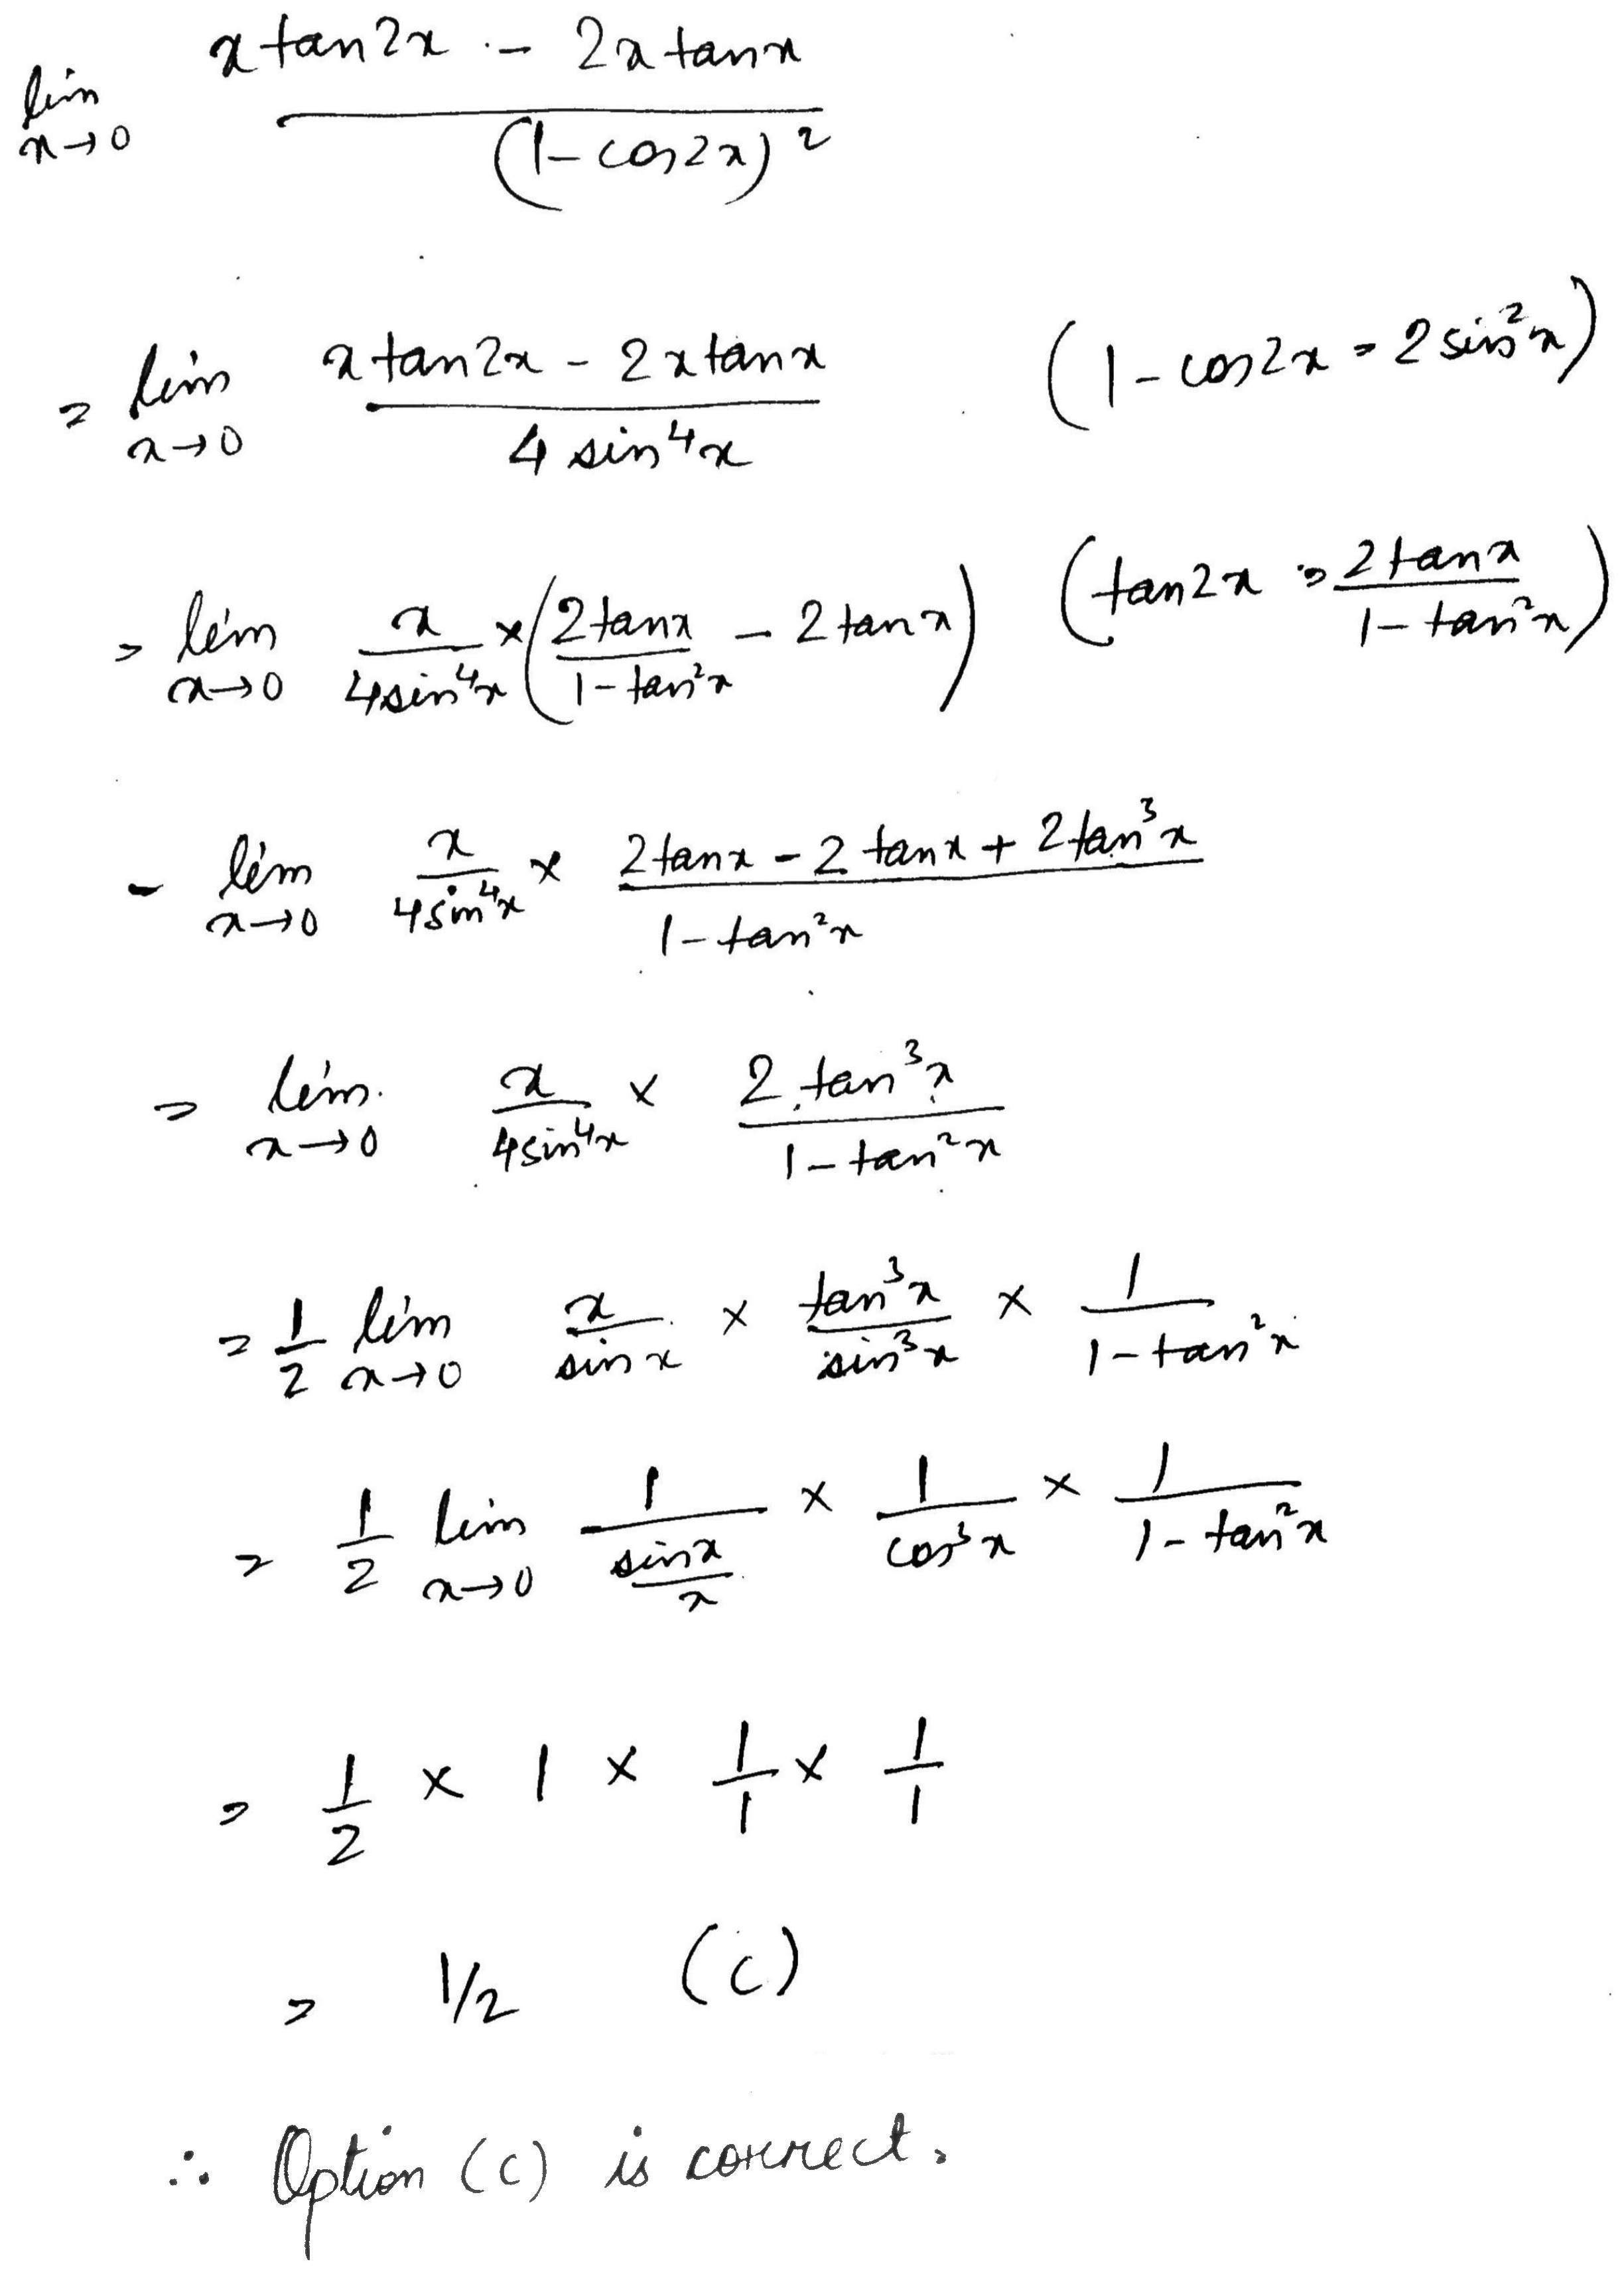 lim x→0 (x tan2x - 2x tanx) / (1-cos2x)²
= lim x→0 (x tan2x - 2x tanx) / (4 sin⁴x) (1-cos2x = 2sin²x)
= lim x→0 x/(4sin⁴x) × (2tanx/(1-tan²x) - 2tanx) (tan2x = 2tanx/(1-tan²x))
- lim x→0 x/(4sin⁴x) × (2tanx - 2tanx + 2tan³x)/(1-tan²x)
= lim. x→0 x/(4sin⁴x) × 2.tan³x/(1-tan²x)
= 1/2 lim x→0 x/sinx × tan³x/sin³x × 1/(1-tan²x)
= 1/2 lim x→0 1/(sinx/x) × 1/cos³x × 1/(1-tan²x)
= 1/2 × 1 × 1/1 × 1/1
= 1/2 (C)
∴ Option (C) is correct.